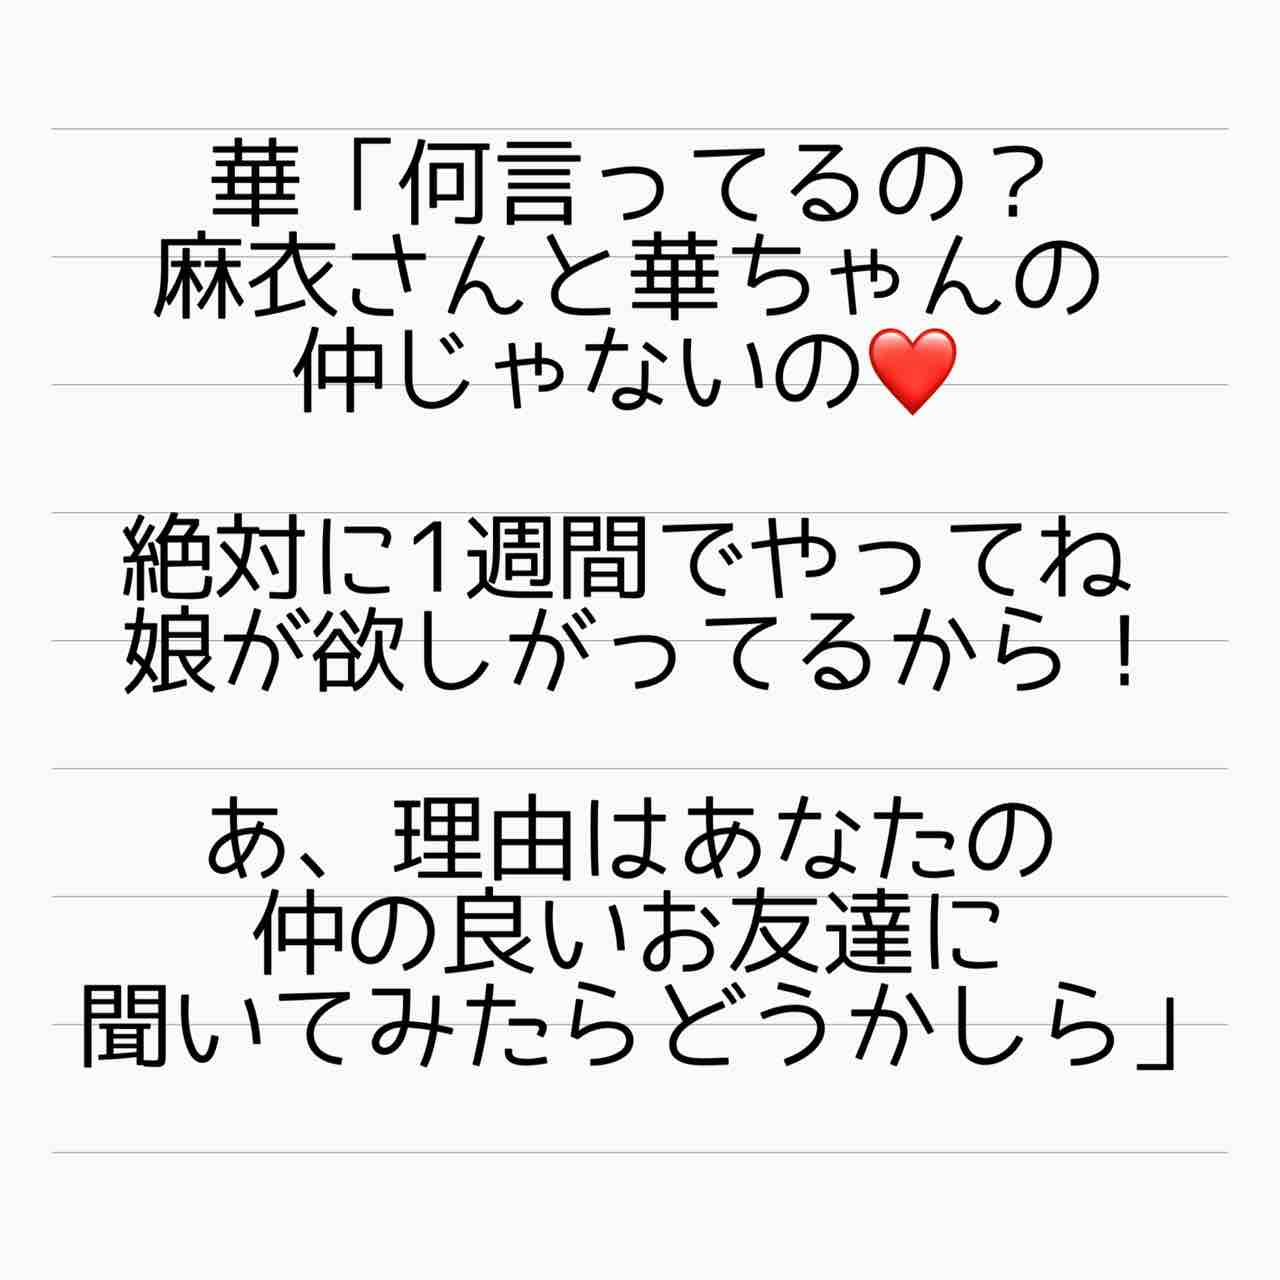 華「何言ってるの？
麻衣さんと華ちゃんの
仲じゃないの❤️
絶対に1週間でやってね
娘が欲しがってるから！
あ、理由はあなたの
仲の良いお友達に
聞いてみたらどうかしら」